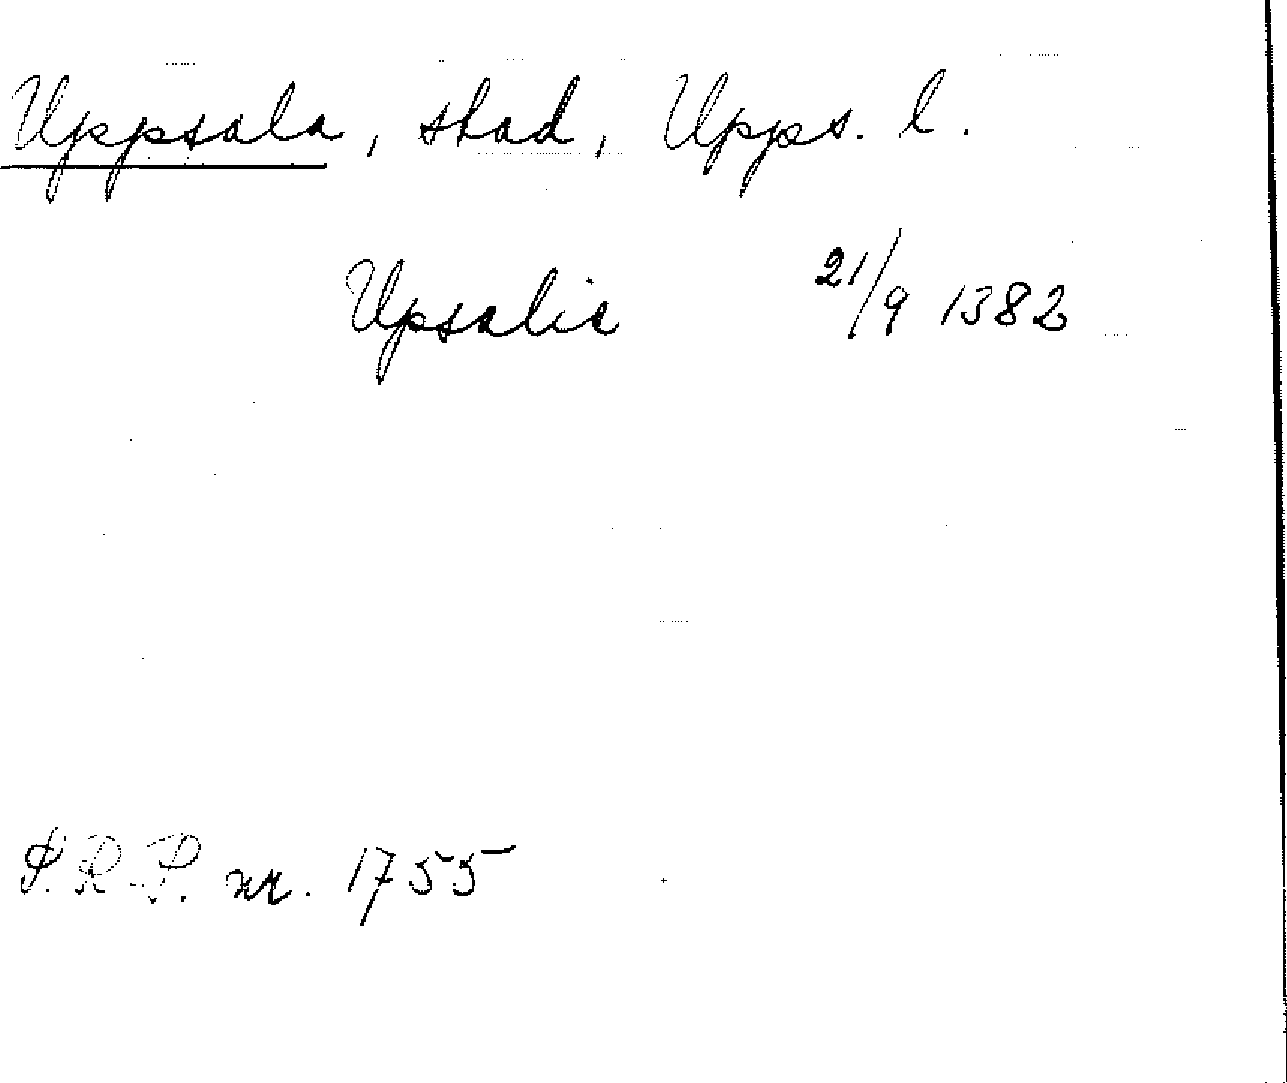 Uppsala, stad, Upps. l.
Upsalia 21/9 1382
P.R.P. nr. 1755